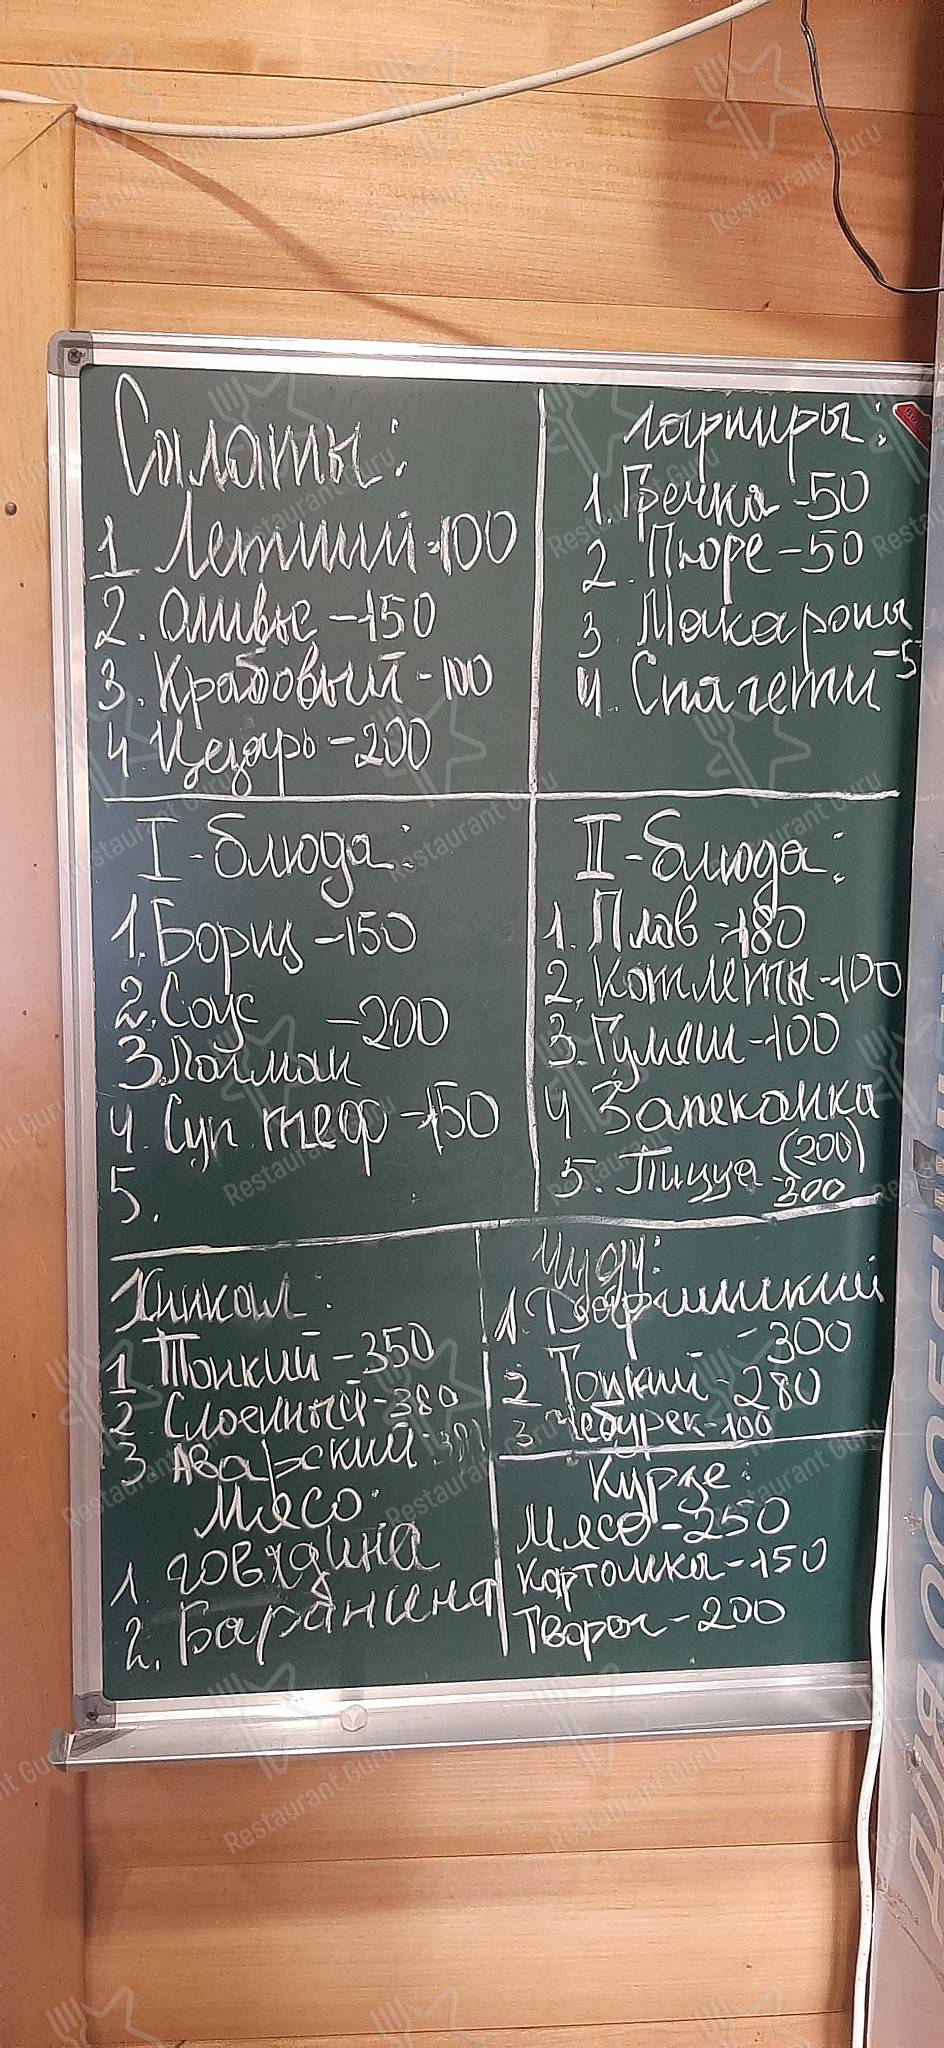 Салаты:
1 Летний-100
2. Оливье-150
3. Крабовый-100
4. Цезарь-200
Гарниры:
1. Гречка-50
2. Пюре-50
3 Макароны
4. Спагети -5
I-блюда:
1. Борщ-150
2. Соус -200
3. Лагман
4. Суп теф-150
5.
II-блюда:
1. Плов-180
2. Котлеты-100
3. Гуляш-100
4 Запеканка
5. Пицца (200)
-300
Хинкал:
1 Тонкий-350
2 Слоенный-380
3 Аварский
Мясо:
1. говядина
2. Баранина
Чуду:
1.
-300
2 Тонкий-280
3 Чебурек-100
Курзе:
Мясо-250
Картошка-150
Творог-200
Restaurant Guru